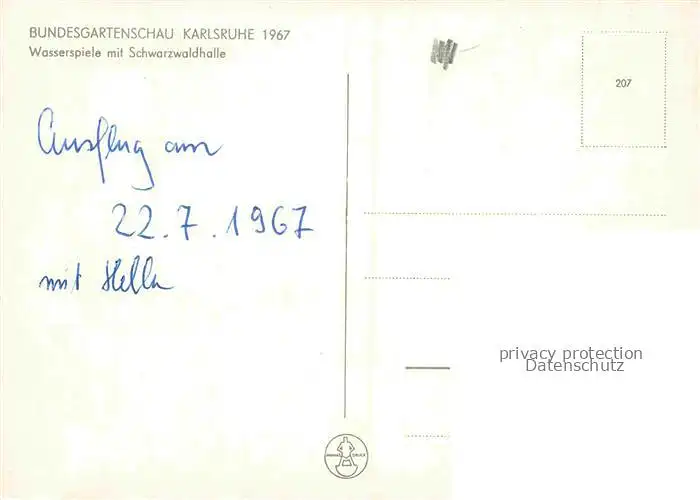 BUNDESGARTENSCHAU KARLSRUHE 1967
Wasserspiele mit Schwarzwaldhalle
207
Ausflug am
22.7.1967
mit Hella
privacy protection
Datenschutz